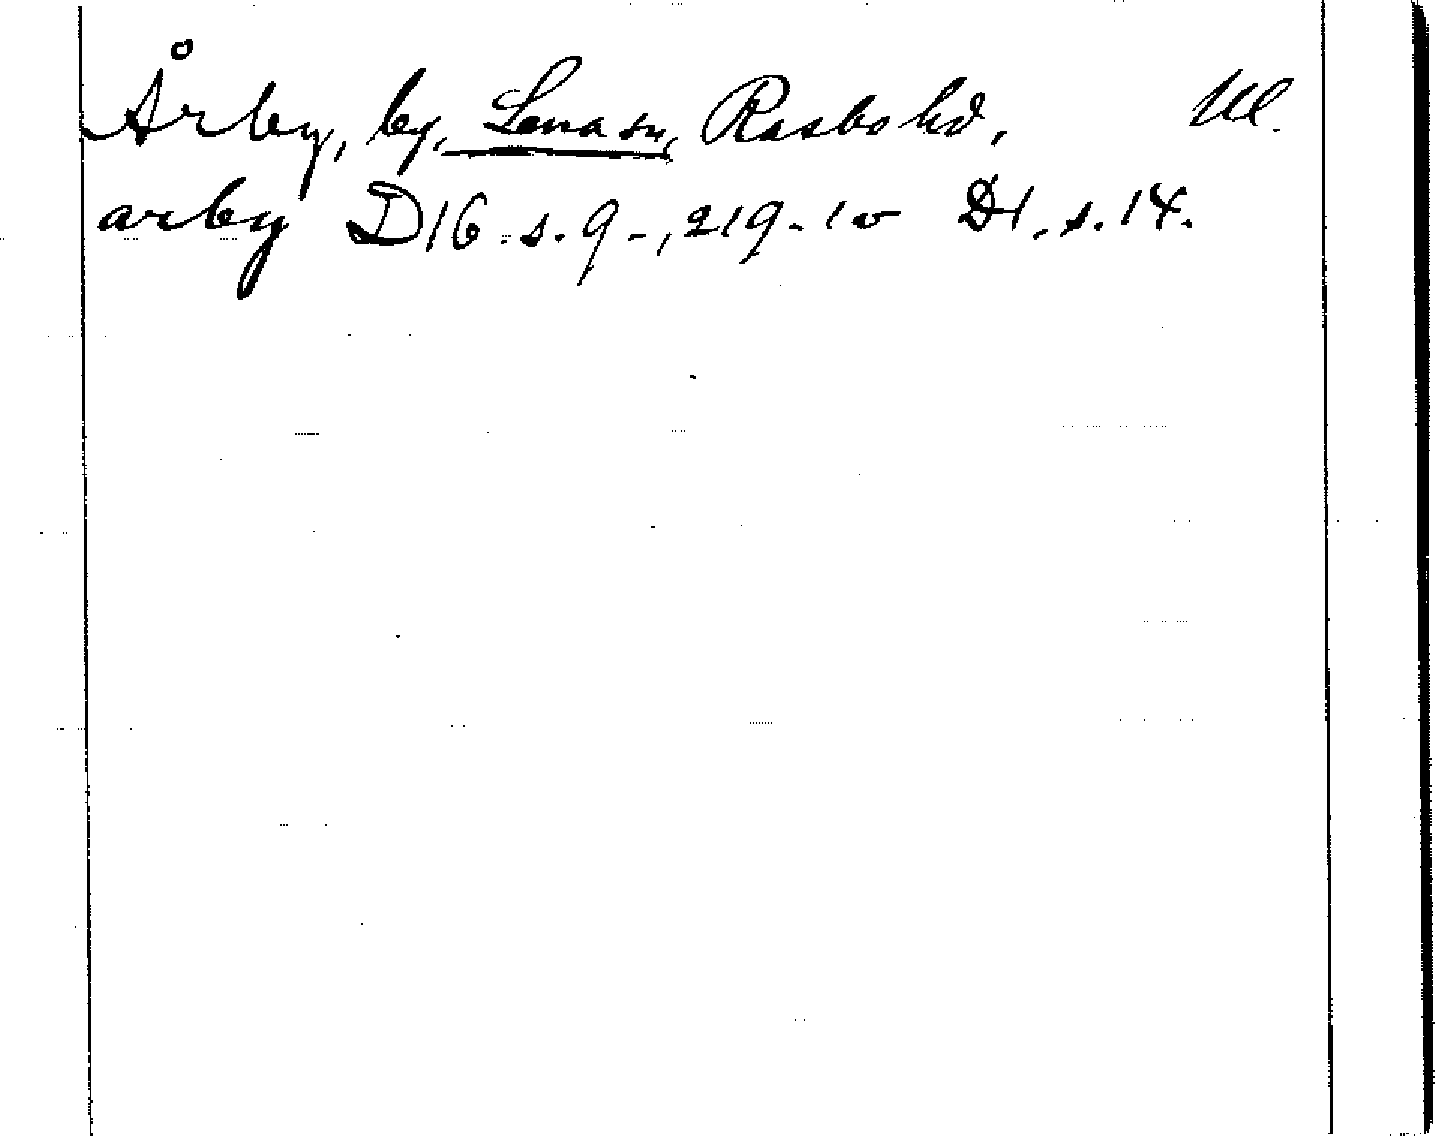 Årby, by, Lena sn, Rasbo hd, Ul.
arby D16. s. 9-, 219. 10 D1. s. 14.